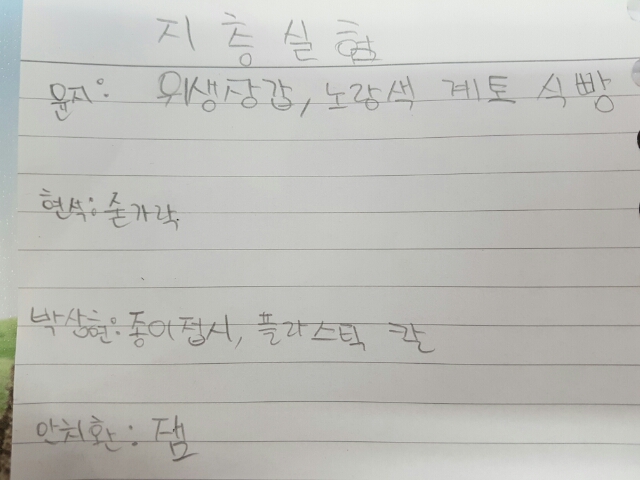 지층실험
윤지: 위생장갑, 노랑색 계토 식빵
현석: 숟가락
박상현: 종이접시, 플라스틱 칼
안치환: 잼